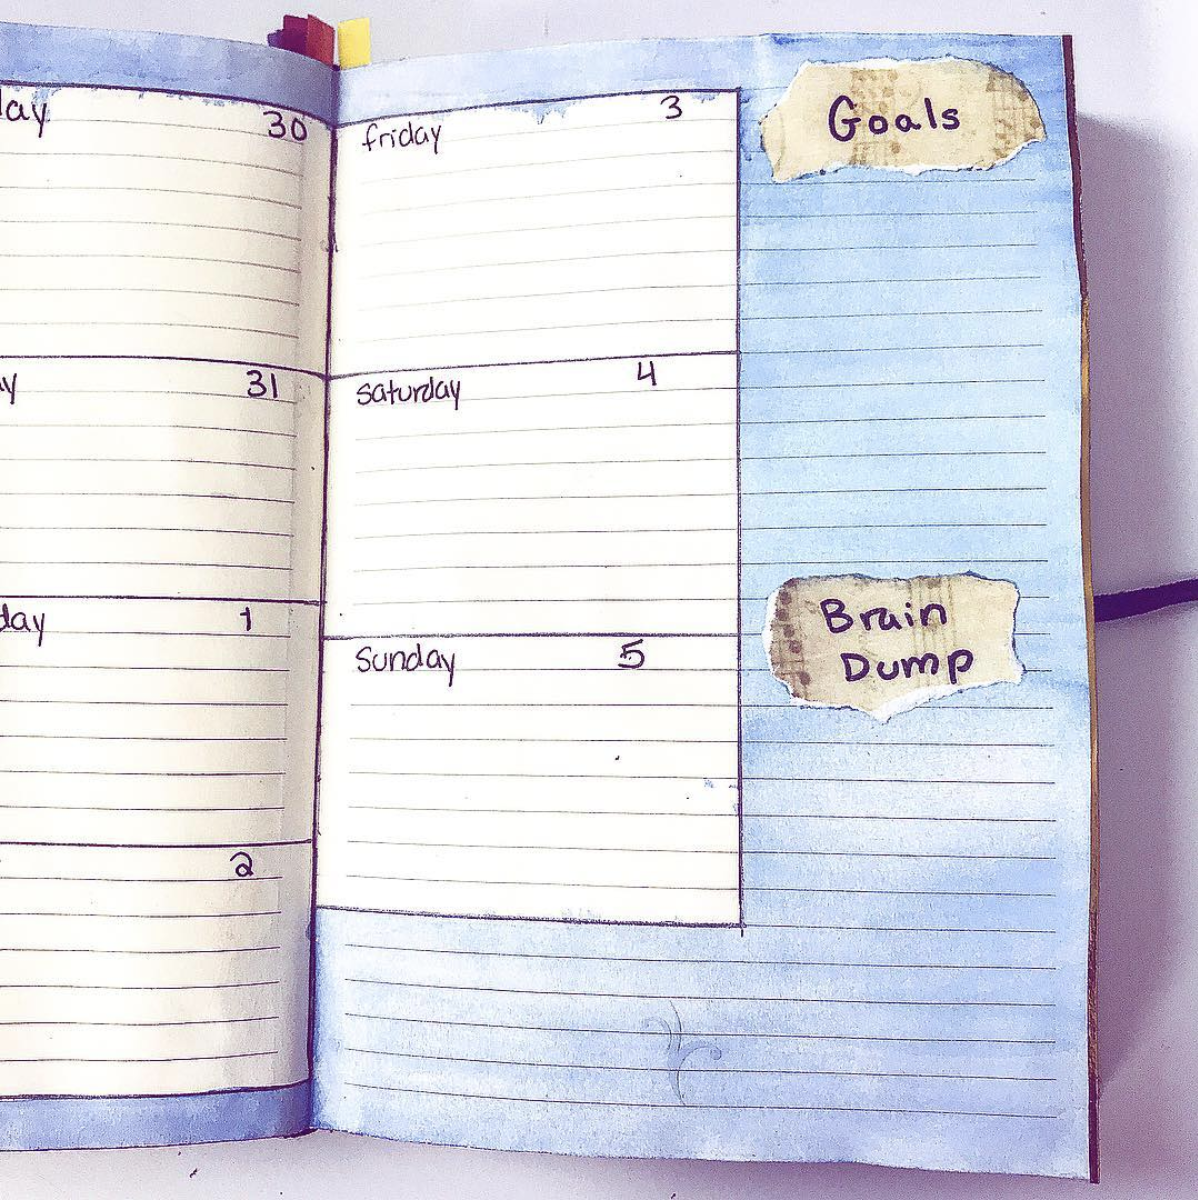 day
30
31
day
1
2
friday
3
saturday
4
Sunday
5
Goals
Brain
Dump